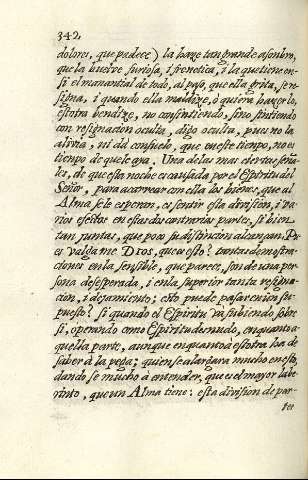 342
dolores, que padece) la haze tan grande asonbro,
que la buelve furiosa, i frenetica, i la que tiene en
si el manantial de todo, al paso, que ella grita, se re-
signa, i quando ella maldize, ò quiera hazerlo,
estotra bendize, no consintiendo, sino sintiendo
con resignacion oculta, digo oculta, pues no la
alivia, ni dà consuelo, que en este tiempo, no es
tiempo de que le aya. Una de las mas ciertas seña-
les, de que esta noche es causada por el Espiritu del
Señor, para acarrear con ella los bienes, que al
Alma se le esperan, es sentir esta division, i va-
rios efectos en estas dos contrarias partes, si bien
tan juntas, que pocos su distincion alcançan, Pu-
es valgame DIOS, que es esto? tantas demostra-
ciones en la sensible, que parece, son de una per-
sona desesperada, i en la superior tanta resigna-
cion, i dexamiento; esto puede pasar en un su-
puesto? Si quando el Espiritu và subiendo sobre
si, operando como Espiritu desnudo, en quanto a
aquella parte, aunque en quanto à estotra ha de
saber à la pega; quien se alargara mucho en esto,
dandose mucho à entender, que es el mayor labe-
rinto, que un Alma tiene: esta division de par-
tes